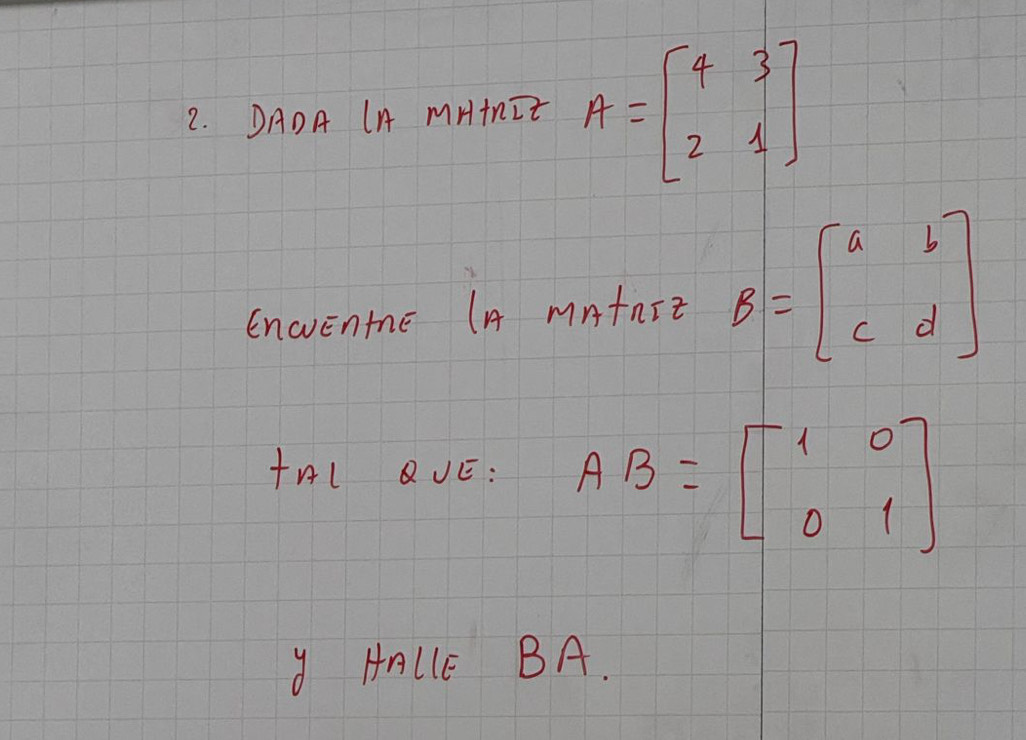 2. DADA LA MATRIZ A = [4 3
2 1]
ENCUENTRE LA MATRIZ B = [a b
c d]
TAL QUE: AB = [1 0
0 1]
y HALLE BA.